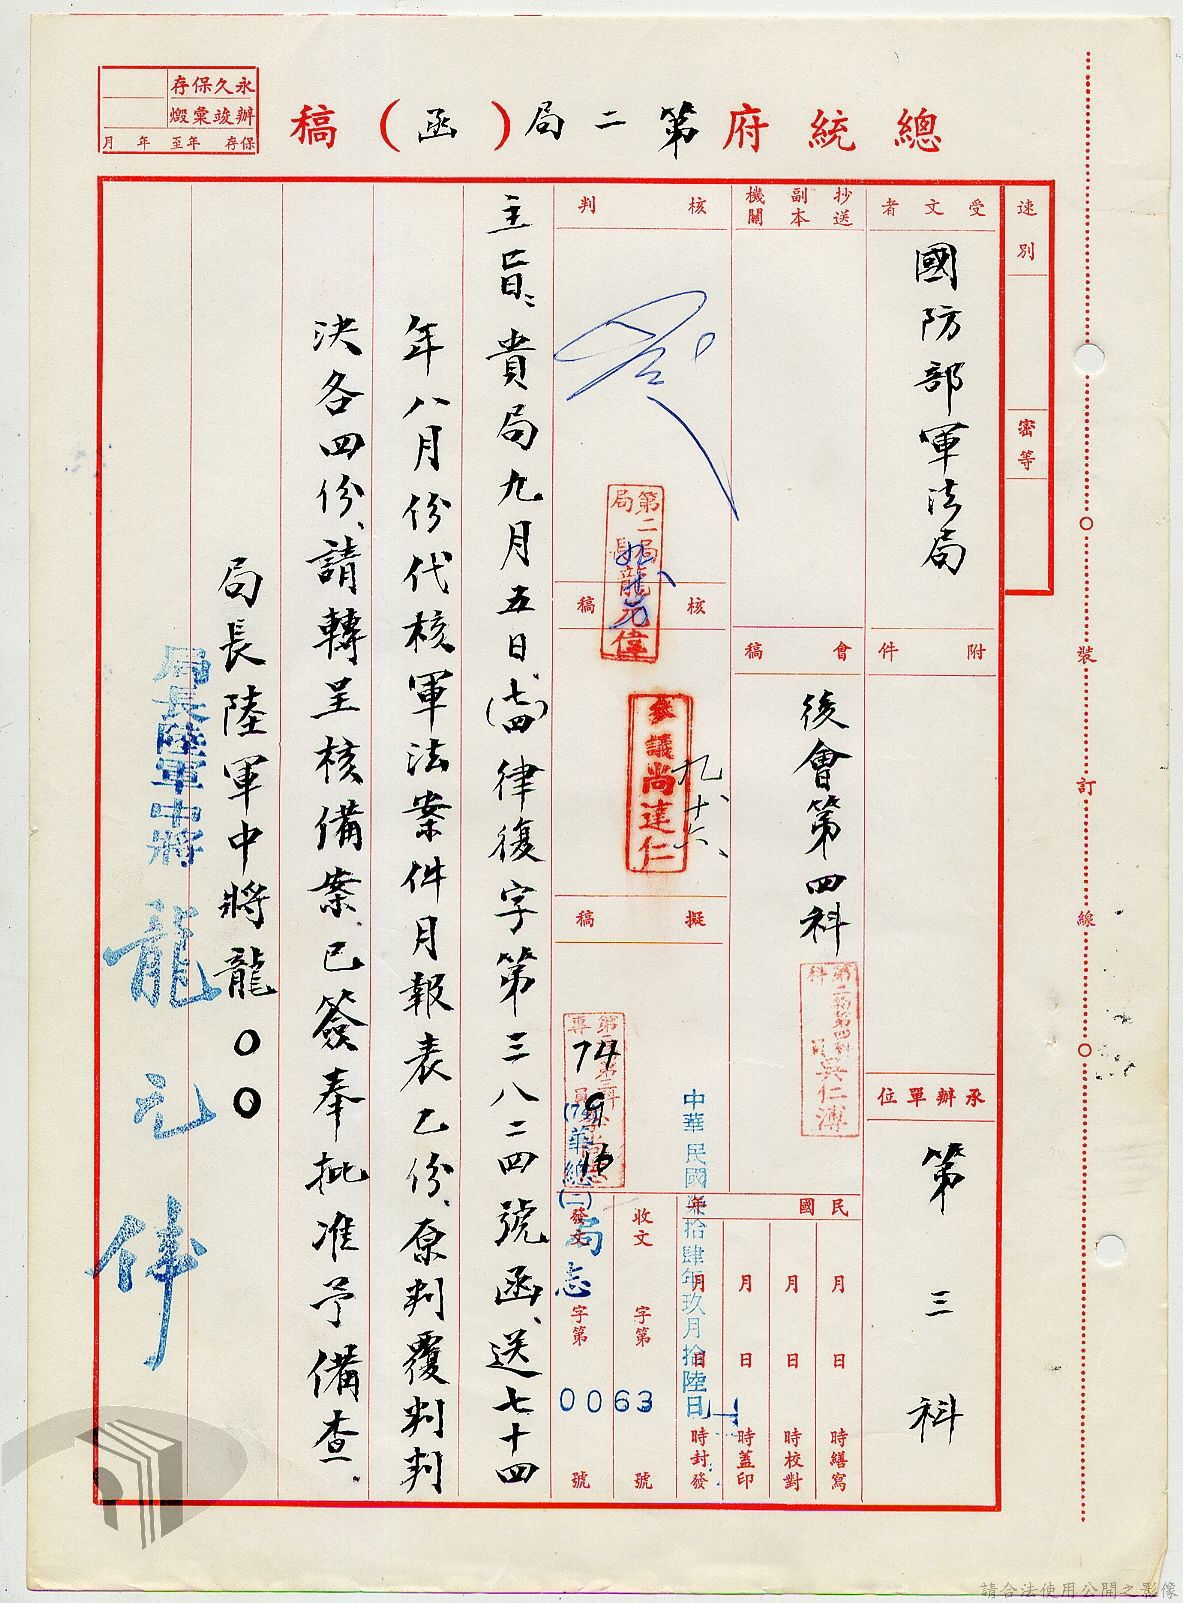 總統府第二局(函)稿
永久保存
辦竣彙燬
保存 年至 年 月
速別
密等
受文者
國防部軍法局
抄送副本機關
附件
會稿
後會第四科
第二局第四科
科員吳仁溥
承辦單位
第三科
核判
第二局
局長龍元偉
核稿
參議尚達仁
九、十六、
擬稿
74
9
16
民國 年
月 日 時繕寫
月 日 時校對
月 日 時蓋印
月 日 時封發
中華民國柒拾肆年玖月拾陸日
收文 字第 號
發文 字第 號
(74)華總(二)局志
0063
主旨:貴局九月五日、(七四)律復字第三八二四號函、送七十四
年八月份代核軍法案件月報表乙份、原判覆判判
決各四份、請轉呈核備案、已簽奉批准予備查。
局長陸軍中將龍〇〇
局長陸軍中將 龍元偉
裝
訂
線
請合法使用公開之影像